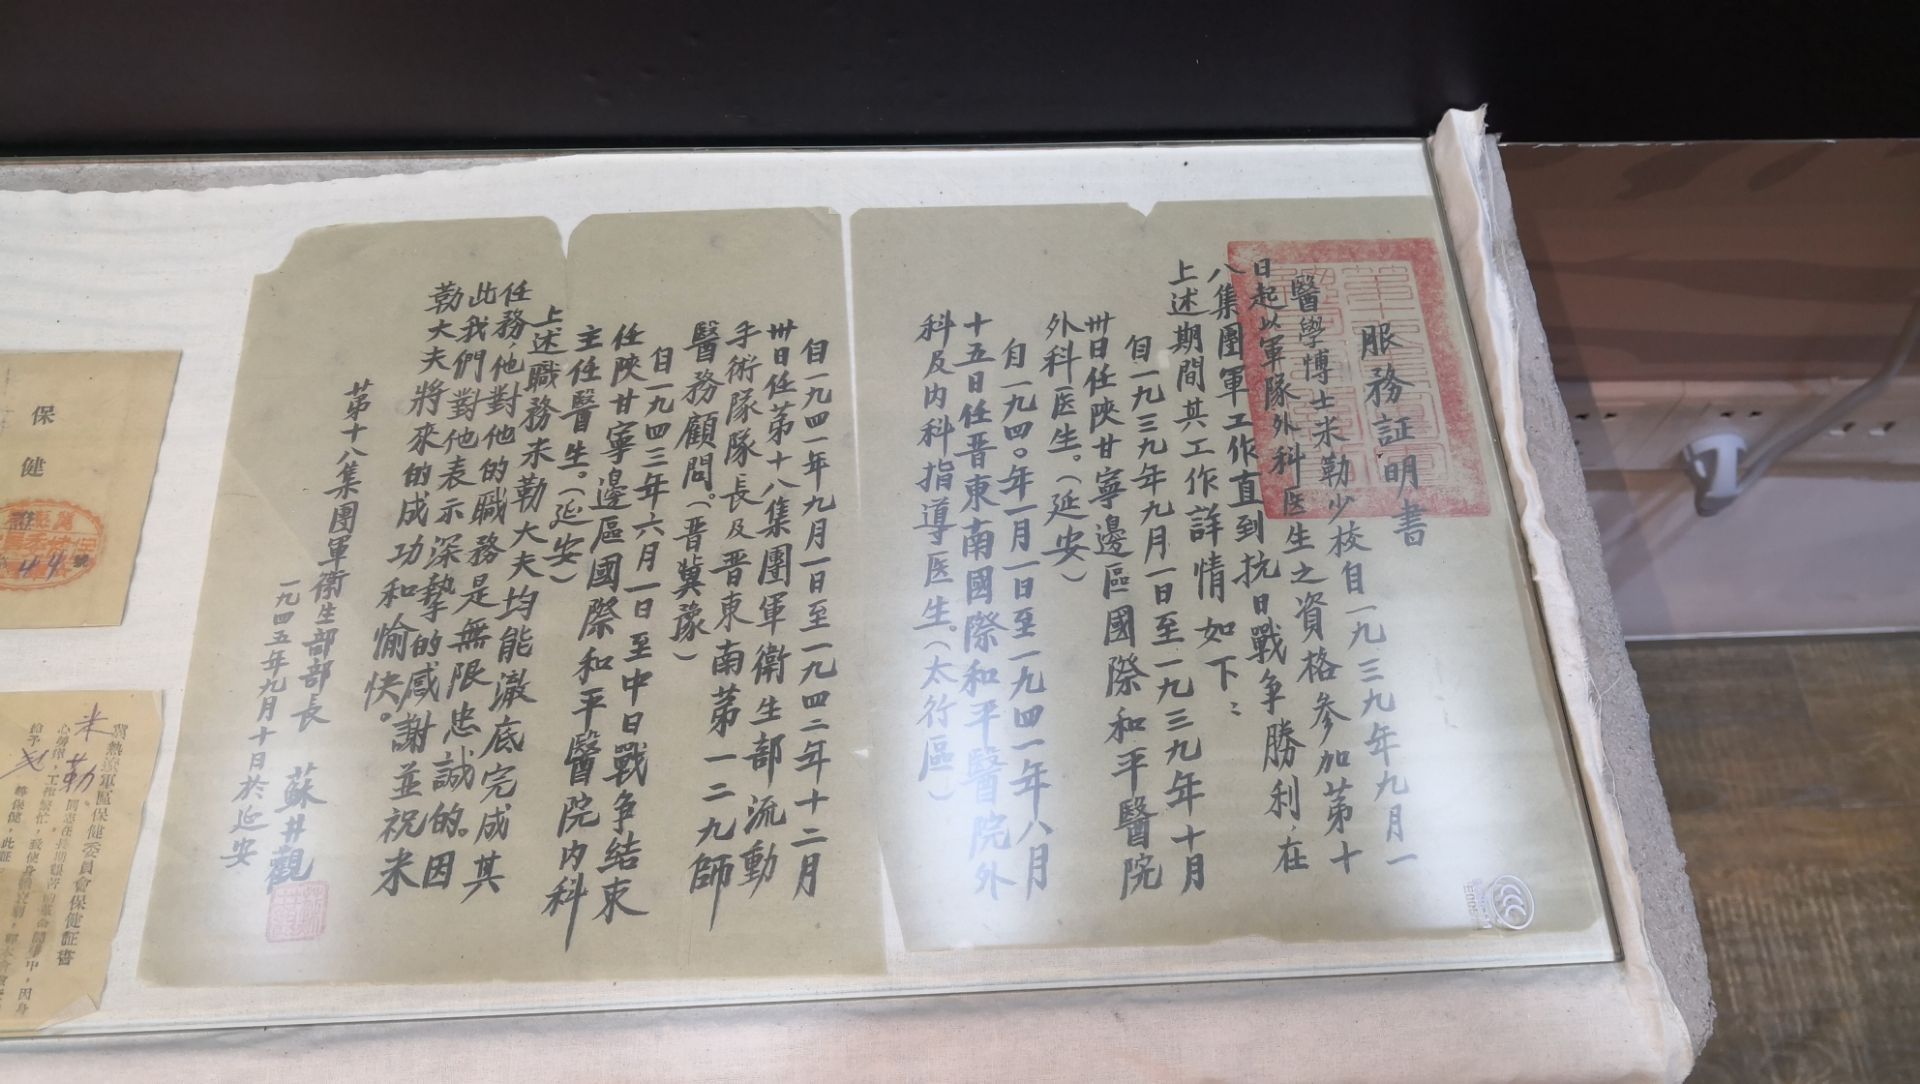 服務証明書
醫學博士米勒少校自一九三九年九月一
日起以軍隊外科医生之資格參加苐十
八集團軍工作直到抗日戰争勝利,在
上述期間其工作詳情如下:
自一九三九年九月一日至一九三九年十月
卅日任陝甘寧邊區國際和平醫院
外科医生。(延安)
自一九四〇年一月一日至一九四一年八月
十五日任晋東南國際和平醫院外
科及内科指導医生。(太行區)
自一九四一年九月一日至一九四二年十二月
卅日任苐十八集團軍衛生部流動
手術隊隊長及晋東南苐一二九師
醫務顧問。(晋冀豫)
自一九四三年六月一日至中日戰争结束
任陝甘寧邊區國際和平醫院内科
主任醫生。(延安)
上述職務米勒大夫均能澈底完成其
任務,他對他的職務是無限忠誠的。因
此我們對他表示深摯的感謝並祝米
勒大夫將來的成功和愉快。
苐十八集團軍衛生部部長 蘇井觀
一九四五年九月十日於延安
保健
44 號
冀熱遼軍區保健委員會保健証書
米勒 同志在長期艱苦的革命鬪爭中,因身
心勞瘁,工作繁忙,致使身體衰弱,經本會
給予 等保健,此証